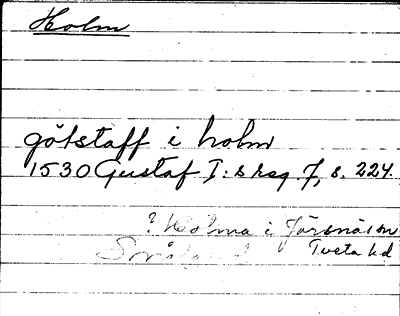 Holm
götstaff i holm
1530 Gustaf I: s reg 7, s. 224.
? Holma i Järsnäs sn
Tveta hd
Småland